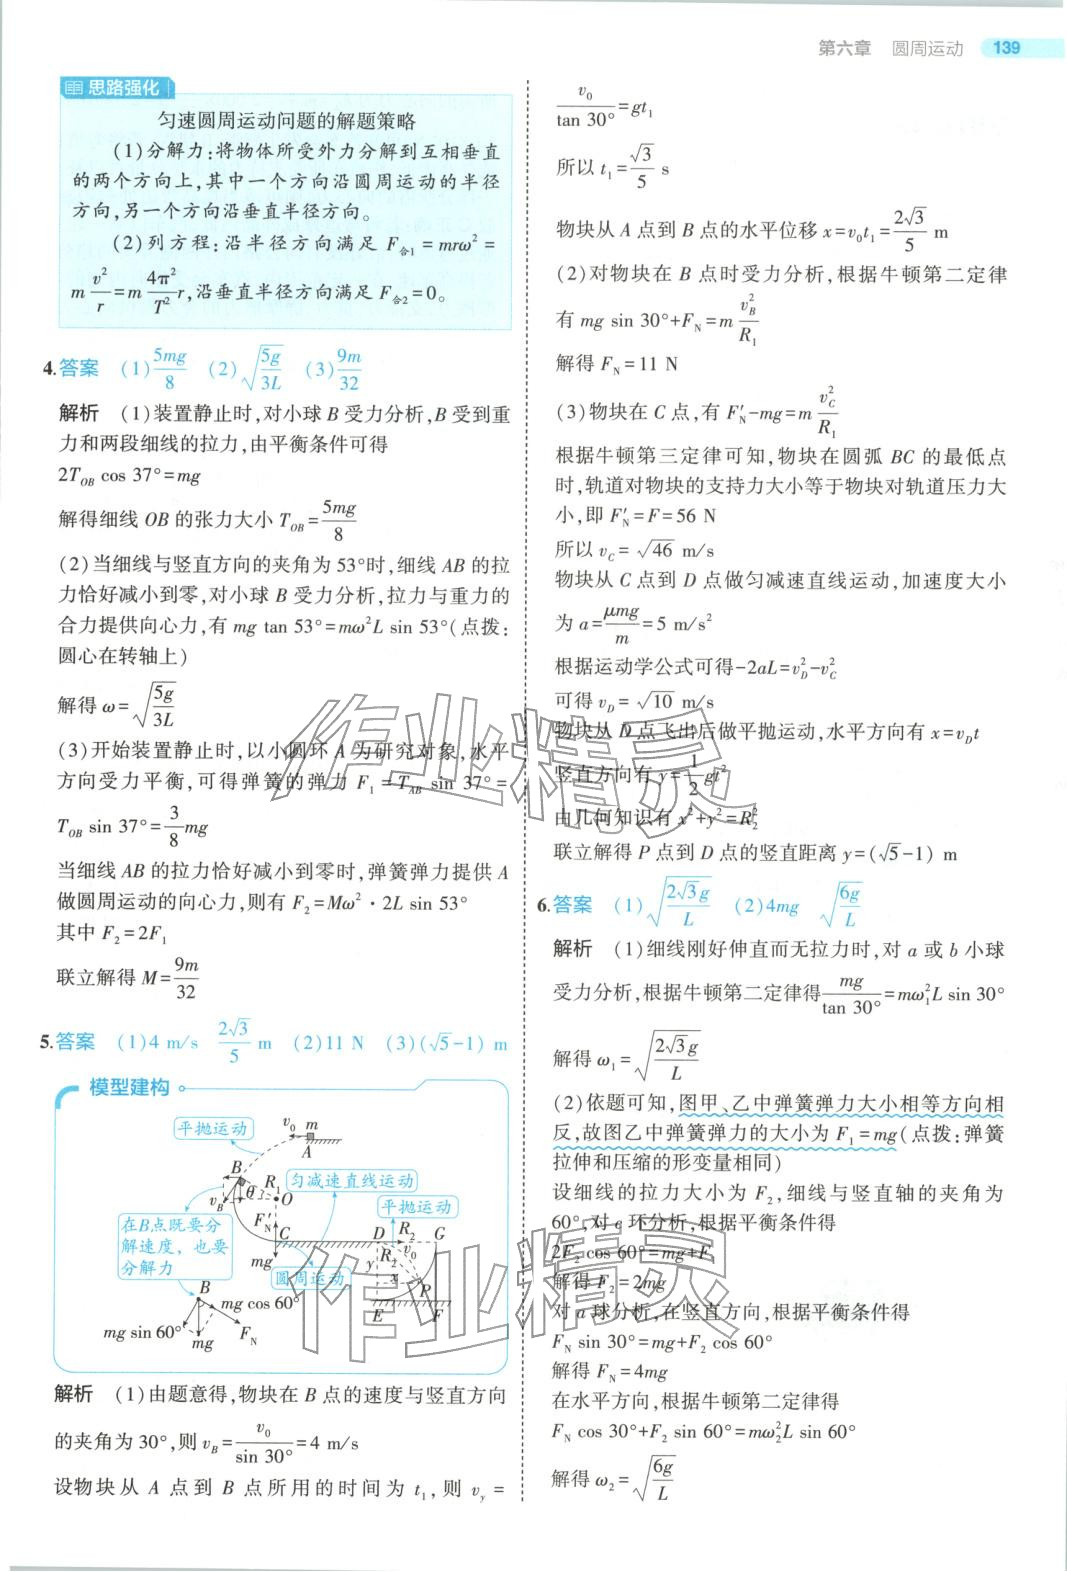 第六章 圆周运动 139
思路强化
匀速圆周运动问题的解题策略
(1)分解力:将物体所受外力分解到互相垂直
的两个方向上,其中一个方向沿圆周运动的半径
方向,另一个方向沿垂直半径方向。
(2)列方程:沿半径方向满足 F合1=mrω²=
m v²/r=m 4π²/T² r,沿垂直半径方向满足 F合2=0。
4.答案 (1)5mg/8 (2)√(5g/3L) (3)9m/32
解析 (1)装置静止时,对小球 B 受力分析,B 受到重
力和两段细线的拉力,由平衡条件可得
2T_OB cos 37°=mg
解得细线 OB 的张力大小 T_OB=5mg/8
(2)当细线与竖直方向的夹角为 53°时,细线 AB 的拉
力恰好减小到零,对小球 B 受力分析,拉力与重力的
合力提供向心力,有 mg tan 53°=mω²L sin 53°(点拨:
圆心在转轴上)
解得 ω=√(5g/3L)
(3)开始装置静止时,以小圆环 A 为研究对象,水平
方向受力平衡,可得弹簧的弹力 F₁=T_AB sin 37°=
T_OB sin 37°=3/8 mg
当细线 AB 的拉力恰好减小到零时,弹簧弹力提供 A
做圆周运动的向心力,则有 F₂=Mω²·2L sin 53°
其中 F₂=2F₁
联立解得 M=9m/32
5.答案 (1)4 m/s 2√3/5 m (2)11 N (3)(√5-1) m
模型建构
平抛运动
v₀ m
A
B
θ R₁ O
v_B
匀减速直线运动
平抛运动
在B点既要分
解速度，也要
分解力
F′_N
C D R₂ G
mg
v₀
R₂
y
x
P
E F
圆周运动
B
mg cos 60°
mg sin 60°
F_N
mg
解析 (1)由题意得,物块在 B 点的速度与竖直方向
的夹角为 30°,则 v_B=v₀/sin 30°=4 m/s
设物块从 A 点到 B 点所用的时间为 t₁,则 v_y=
v₀/tan 30°=gt₁
所以 t₁=√3/5 s
物块从 A 点到 B 点的水平位移 x=v₀t₁=2√3/5 m
(2)对物块在 B 点时受力分析,根据牛顿第二定律
有 mg sin 30°+F_N=m v_B²/R₁
解得 F_N=11 N
(3)物块在 C 点,有 F′_N-mg=m v_C²/R₁
根据牛顿第三定律可知,物块在圆弧 BC 的最低点
时,轨道对物块的支持力大小等于物块对轨道压力大
小,即 F′_N=F=56 N
所以 v_C=√46 m/s
物块从 C 点到 D 点做匀减速直线运动,加速度大小
为 a=μmg/m=5 m/s²
根据运动学公式可得-2aL=v_D²-v_C²
可得 v_D=√10 m/s
物块从 D 点飞出后做平抛运动,水平方向有 x=v_D t
竖直方向有 y=1/2 gt²
由几何知识有 x²+y²=R₂²
联立解得 P 点到 D 点的竖直距离 y=(√5-1) m
6.答案 (1)√(2√3g/L) (2)4mg √(6g/L)
解析 (1)细线刚好伸直而无拉力时,对 a 或 b 小球
受力分析,根据牛顿第二定律得mg/tan 30°=mω₁²L sin 30°
解得 ω₁=√(2√3g/L)
(2)依题可知,图甲、乙中弹簧弹力大小相等方向相
反,故图乙中弹簧弹力的大小为 F₁=mg(点拨:弹簧
拉伸和压缩的形变量相同)
设细线的拉力大小为 F₂,细线与竖直轴的夹角为
60°,对 c 环分析,根据平衡条件得
2F₂ cos 60°=mg+F₁
解得 F₂=2mg
对 a 球分析,在竖直方向,根据平衡条件得
F_N sin 30°=mg+F₂ cos 60°
解得 F_N=4mg
在水平方向,根据牛顿第二定律得
F_N cos 30°+F₂ sin 60°=mω₂²L sin 60°
解得 ω₂=√(6g/L)
作业精灵
作业精灵